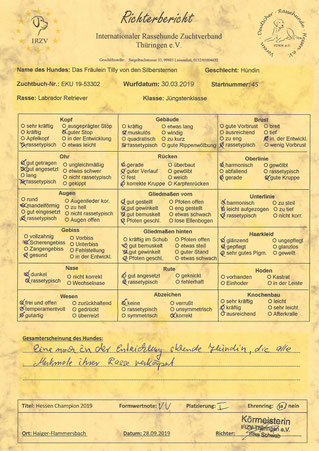 Richterbericht
IRZV
Internationaler Rassehunde Zuchtverband
Thüringen e.V.
Name des Hundes: Das Fräulein Tilly von den Silbersternen Geschlecht: Hündin
Zuchtbuch-Nr.: EKU 19-53302 Wurfdatum: 30.03.2019 Startnummer: 45
Rasse: Labrador Retriever Klasse: Jüngstenklasse
Kopf Gebäude Brust
sehr kräftig ausgeprägter Stop kräftig etwas lang gute Vorbrust breit
kräftig guter Stop muskulös windig ausreichend eng
Apfelkopf in der Entwicklung quadratisch zu kurz zu tief in der Entwickl.
rassetypisch etwas leicht rassetypisch gute Rippenwölbung rassetypisch wenig Vorbrust
Ohr Rücken Oberlinie
gut getragen ungleichmäßig gerade überbaut harmonisch gewölbt
gut angesetzt etwas schwer guter Verlauf gewölbt abfallend rassetypisch
lang nicht rassetypisch fest weich gerade gute Kruppe
rassetypisch gekippt korrekte Kruppe Karpfenrücken
Augen Gliedmaßen vorn Unterlinie
rund Augenlieder kor. gut gestellt Pfoten offen
mandelförmig zu tief gut gewinkelt etwas steil harmonisch zu steil
gut eingesetzt nicht rassetypisch gut bemuskelt zehenweit leicht aufgezogen nicht korrekt
rassetypisch Augen offen Pfoten geschl. lose Ellenbogen rassetypisch
Gebiss Gliedmaßen hinten Haarkleid
vollzahnig Vorbiss kräftig im Schub Pfoten offen glänzend ungepflegt
Scherengebiss Unterbiss gut gewinkelt etwas steil gepflegt glanzlos
Zangengebiss Fehlstellung gut bemuskelt guter Stand sehr gutes Pigment weich
in der Entwickl. Pfoten geschl. etwas schwach
Nase Rute Hoden
dunkel nicht korrekt gut angesetzt geknickt vorhanden Kastrat
rassetypisch Wechselnase rassetypisch fehlerhaft Einhoder in der Leiste
Wesen Abzeichen Knochenbau
frei und offen zurückhaltend keine verrußt sehr kräftig leicht
temperamentvoll gedrückt rassetypisch unsymmetrisch kräftig sehr leicht
gutartig überreizt symmetrisch korrekt ausreichend Afterkralle
Gesamterscheinung des Hundes:
Eine noch in der Entwicklung stehende Hündin, die alle
Merkmale ihrer Rasse verkörpert
Titel: Hessen Champion 2019 Formwertnote: VV Platzierung: I Ehrenring: ja/nein
Körmeisterin
IRZV-Thüringen e.V.
Ort: Haiger-Flammersbach Datum: 28.09.2019 Richter: Schwab